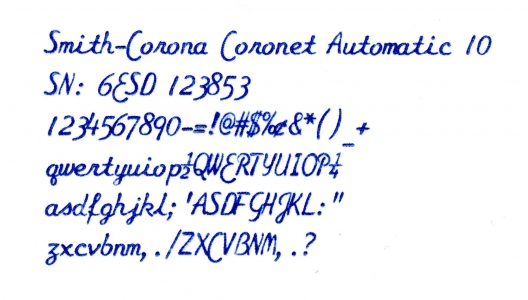 Smith-Corona Coronet Automatic 10
SN: 6ESD 123853
1234567890-=!@#$%¢&*()_+
qwertyuiop½QWERTYUIOP¼
asdfghjkl;'ASDFGHJKL:"
zxcvbnm,./ZXCVBNM,.?